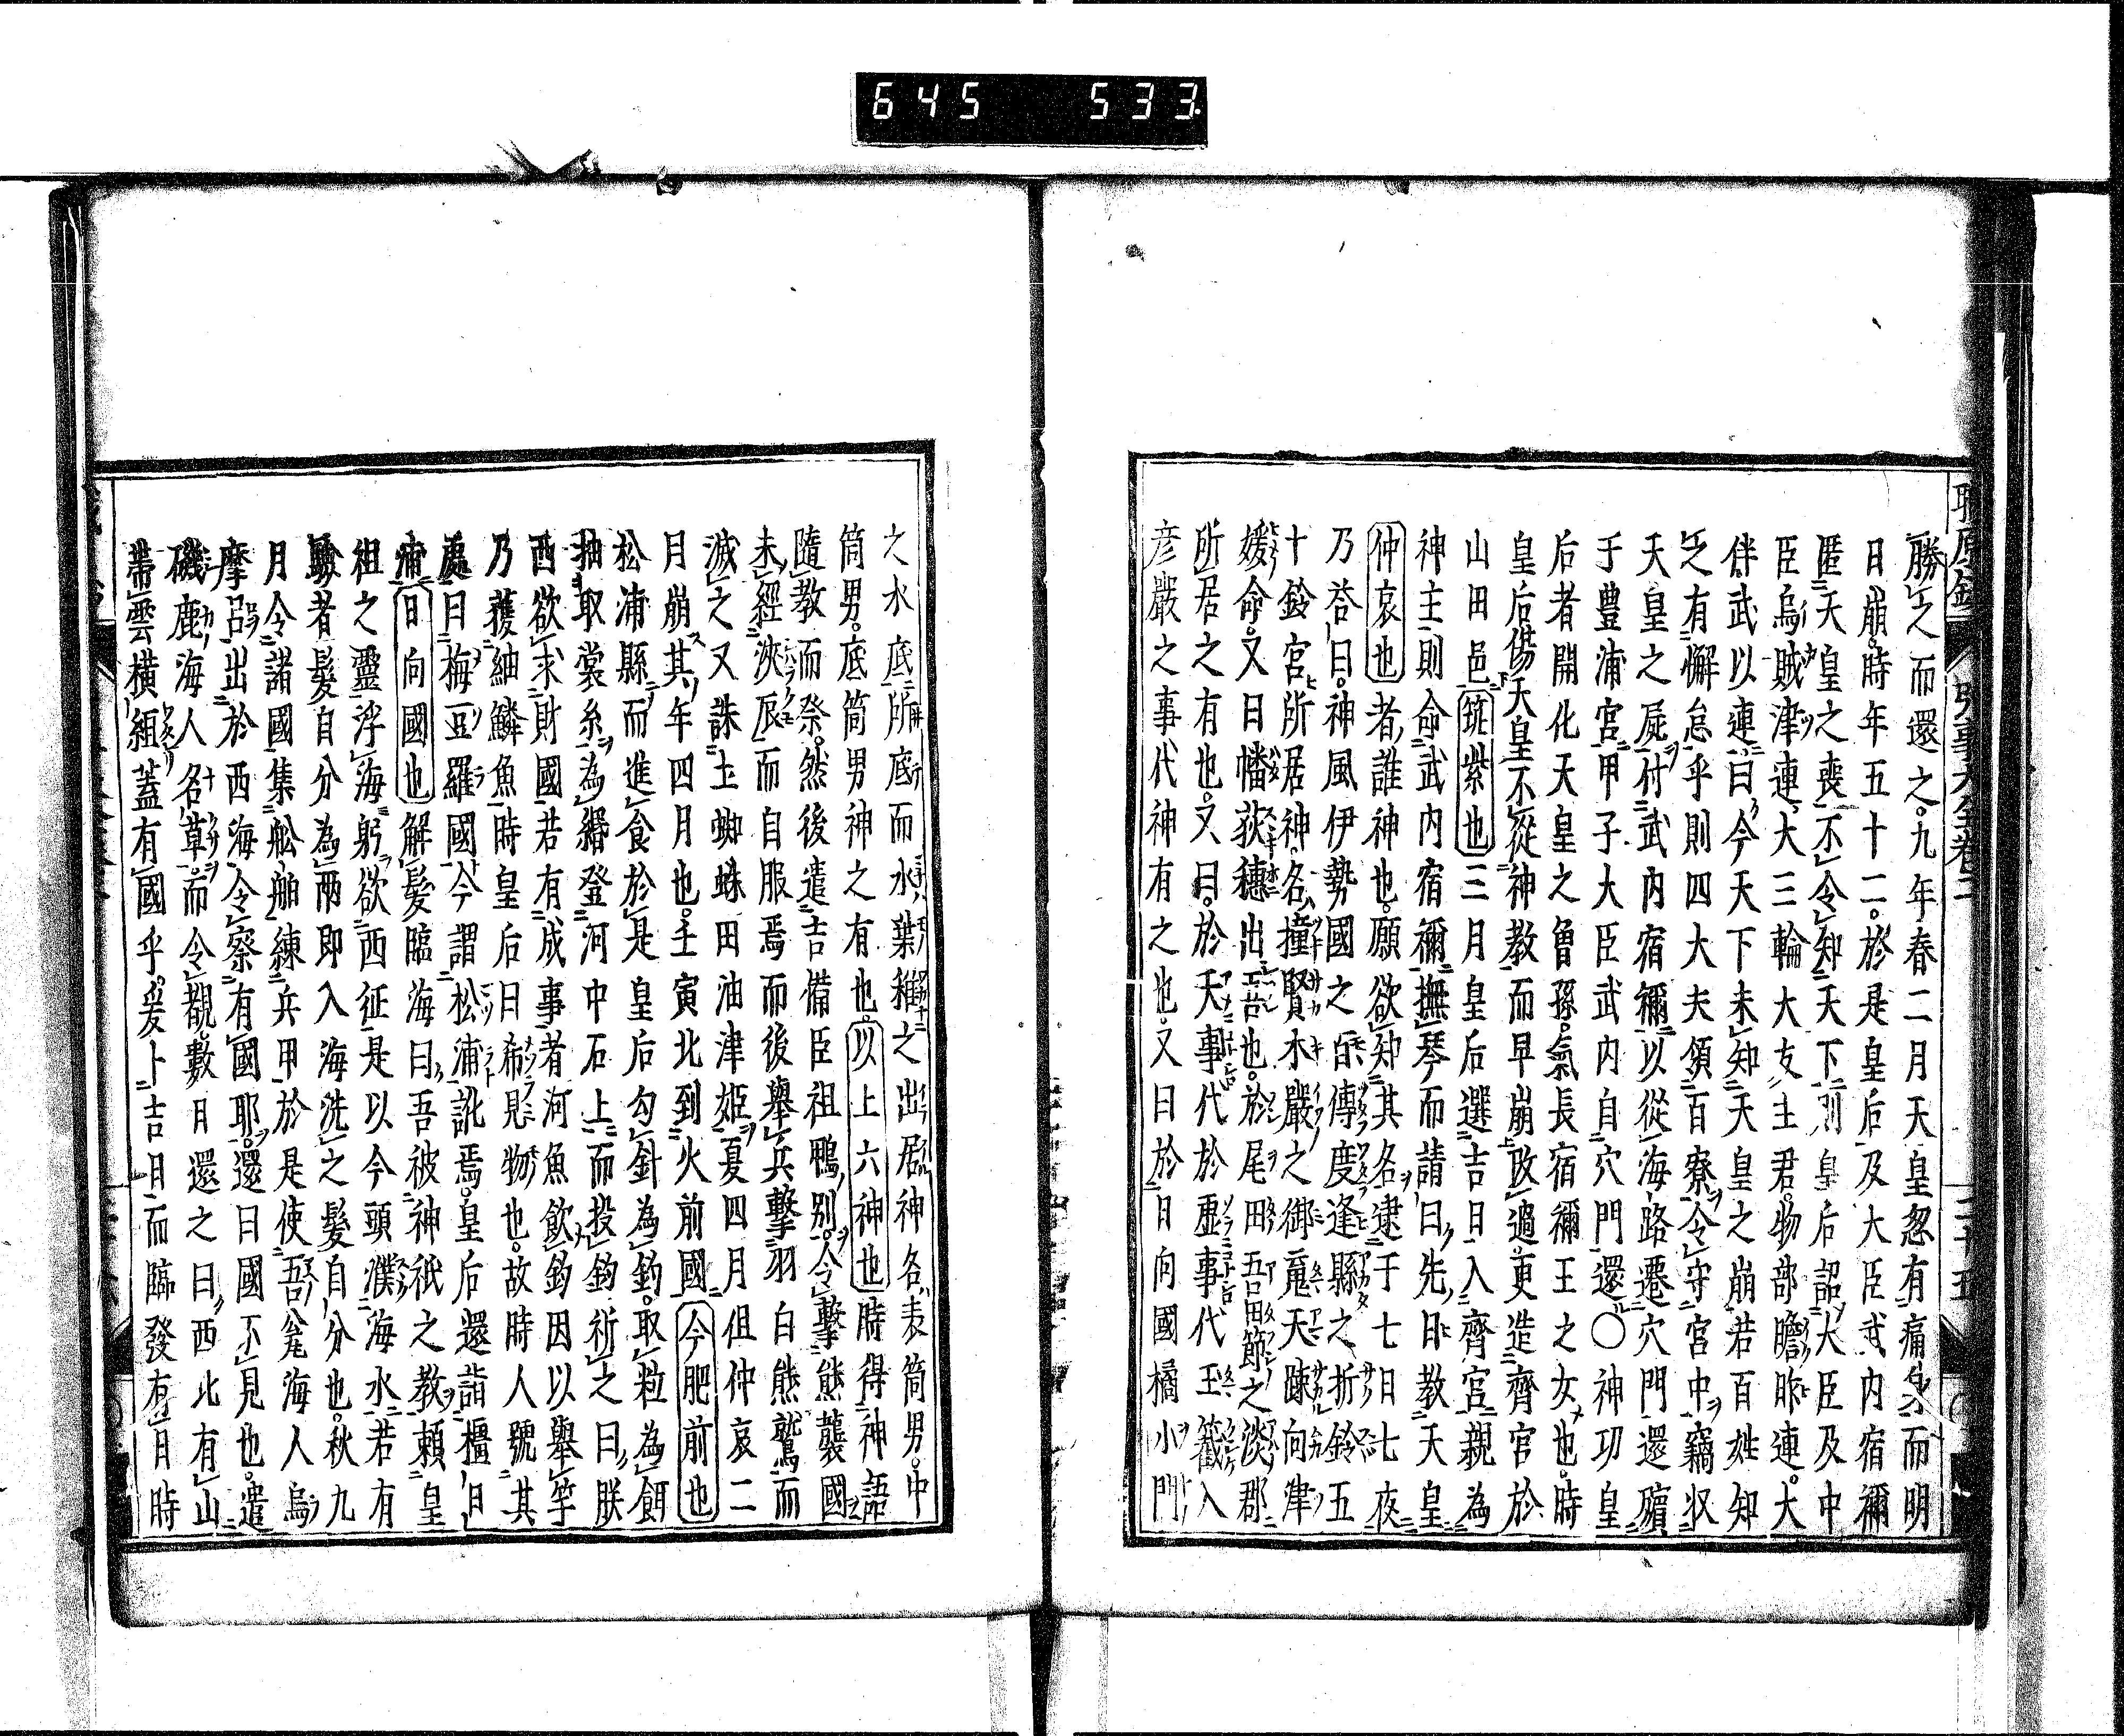 645 533
勝之而還之。九年春二月天皇忽有痛身而明
日崩。時年五十二。於是皇后及大臣武内宿禰
匿天皇之喪不令知天下則皇后詔大臣及中
臣烏賊津連大三輪大友主君。物部膽咋連。大
伴武以連曰今天下未知天皇之崩若百姓知
之有懈怠乎則四大夫領百寮令守宮中竊収
天皇之屍付武内宿禰以從海路遷穴門還殯
于豊浦宮甲子大臣武内自穴門還〇神功皇
后者開化天皇之曾孫。氣長宿禰王之女也。時
皇后傷天皇不從神教而早崩改過。更造齊宮於
山田邑筑紫也三月皇后選吉日入齊宮親為
神主則命武内宿禰撫琴而請曰先日教天皇
仲哀也者誰神也。願欲知其名逮于七日七夜
乃荅曰。神風伊勢國之百傳度逢縣之折鈴五
十鈴宮所居神。名撞賢木嚴之御䰟天踈向津
媛命。又曰幡荻穗出吾也。於尾田吾田節之淡郡
所居之有也。又曰。於天事代於虚事代玉籖入
彦嚴之事代神有之也。又曰於日向國橘小門
之水底所底而水葉稚之出居神名表筒男。中
筒男。底筒男神之有也以上六神也時得神語
隨教而祭。然後遣吉備臣祖鴨別。令擊熊襲國
未經浹辰而自服焉而後舉兵擊羽白熊鷲而
滅之又誅土蜘蛛田油津姫夏四月但仲哀二
月崩其年四月也。壬寅北到火前國今肥前也
松浦縣而進食於是皇后勾針為鈎。取粒為餌
抽取裳糸為緡登河中石上而投鈎祈之曰朕
西欲求財國若有成事者河魚飲鈎因以舉竿
乃獲細鱗魚時皇后曰希見物也。故時人號其
處曰梅豆羅國今謂松浦訛焉。皇后還詣橿日
浦日向國也解髪臨海曰吾被神祇之教頼皇
祖之靈浮海躬欲西征是以今頭濮海水若有
驗者髪自分為兩即入海洗之髪自分也。秋九
月令諸國集舩舶練兵甲於是使吾瓮海人烏
摩呂出於西海令察有國耶。還曰國不見也。遣
磯鹿海人名草。而令觀數日還之曰西北有山
帶雲横組蓋有國乎。爰卜吉日而臨發有日時